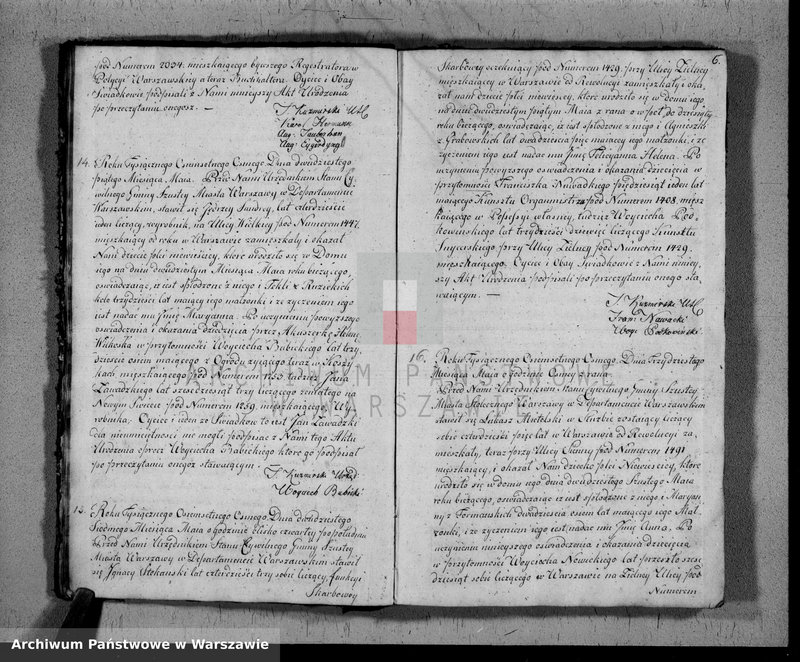 pod Numerem 2034. mieszkaiącego bywszego Registratora w
Policyi Warszawskiey a teraz Buchhaltera. Oyciec i Obay
Swiadkowie podpisali z Nami ninieyszy Akt Urodzenia
po przeczytaniu onegoż. —
Karol Hermann
14. Roku Tysiącznego Osmsetnego Osmego Dnia dwódziestego
piątego Miesiąca Maia. Przed Nami Urzędnikiem Stanu Cy-
wilnego Gminy Szostey Miasta Warszawy w Departamencie
Warszawskim, stawił się Jędrzey lat czterdzieści
ieden liczący, wyrobnik, na Ulicy Wielkiey pod Numerem 1447.
mieszkaiący od roku w Warszawie zamieszkały i okazał
Nam dziecie płci niewieściey, które urodziło się w Domu
iego na dniu dwódziestym Miesiąca Maia roku bieżącego,
oświadczaiąc, iż iest spłodzone z niego i Tekli z
lat maiącey iego małżonki i że życzeniem iego
iest nadać mu Jmię Maryanna. Po uczynieniu powyższego
oświadczenia i okazania dziecięcia przez Akuszerkę Helenę
w przytomności Woyciecha Babickiego lat trzy-
dzieści osiem maiącego z Ogrodu żyiącego teraz w Kosza-
kach mieszkaiącego pod Numerem 1755. tudzież Jana
Zawadzkiego lat sześćdziesiąt trzy liczącego na
Nowym Swiecie pod Numerem 1259. mieszkaiącego, Wy-
robnika. Oyciec i ieden ze Swiadków to iest Jan Zawadzki
dla nieumieiętności nie mogli podpisać z Nami tego Aktu
Urodzenia oprócz Woyciecha Babickiego który go podpisał
po przeczytaniu onegoż stawaiącym.
Woyciech Babicki
15. Roku Tysiącznego Osmsetnego Osmego, Dnia dwódziestego
Siódmego Miesiąca Maia o godzinie blisko czwartey po południu
Przed Nami Urzędnikiem Stanu Cywilnego Gminy Szostey
Miasta Warszawy w Departamencie Warszawskim stawił
się Jgnacy Stokański lat czterdzieści trzy sobie liczący,
Skarbowey
6.
Skarbowey pod Numerem 1429. przy Ulicy Zielney
mieszkaiący w Warszawie od Rewolucyi zamieszkały i oka-
zał nam dziecie płci niewieściey, które urodziło się w domu iego
na dniu dwódziestym piątym Maia z rana o w pół do dziesiątey
roku bieżącego, oświadczaiąc, iż iest spłodzone z niego i Agnieszki
z Grabowskich lat dwódziestu pięć maiącey iego małżonki, i że
życzeniem iego iest nadać mu Jmię Felicyanna Helena. Po
uczynieniu powyższego oświadczenia i okazania dziecięcia w
przytomności Franciszka Nawadzkiego pięćdziesiąt ieden lat
maiącego Kunsztu Organmistrza pod Numerem 1408. miesz-
kaiącego w Possessyi własney, tudzież Woyciecha
lat trzydzieści dziewięć liczącego Kunsztu
Snycerskiego przy Ulicy Zielney pod Numerem 1429.
mieszkaiącego. Oyciec i Obay Swiadkowie z Nami niniey-
szy Akt Urodzenia podpisali po przeczytaniu onego sta-
waiącym. —
16. Roku Tysiącznego Osmsetnego Osmego, Dnia Trzydziestego
Miesiąca Maia o godzinie Osmey z rana
Przed Nami Urzędnikiem Stanu Cywilnego Gminy Szostey
Miasta Stołecznego Warszawy w Departamencie Warszawskim
stawił się Łukasz w Służbie zostaiący liczący
sobie czterdzieści pięć lat w Warszawie od Rewolucyi za-
mieszkały, teraz przy Ulicy pod Numerem 1491
mieszkaiący, i okazał Nam dziecko płci Niewieściey, które
urodziło się w domu iego dnia dwódziestego Szóstego Maia
roku bieżącego, oświadczaiąc iż iest spłodzone z niego i Maryan-
ny z dwódziestu osiem lat maiącego iego Mał-
żonki, i że życzeniem iego iest nadać mu Jmię Anna. Po
uczynieniu ninieyszego oświadczenia i okazania dziecięcia
w przytomności Woyciecha Nowickiego lat przeszło sześć-
dziesiąt sobie liczącego w Warszawie na Zielney Ulicy pod
Numerem
ARCHIWUM PAŃSTWOWE
W WARSZAWIE
Archiwum Państwowe w Warszawie